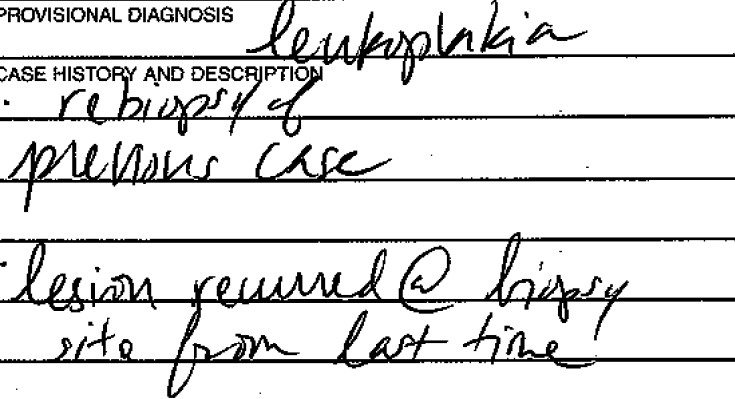 PROVISIONAL DIAGNOSIS
leukoplakia
CASE HISTORY AND DESCRIPTION
· rebiopsy of
previous case
· lesion recurred @ biopsy
site from last time